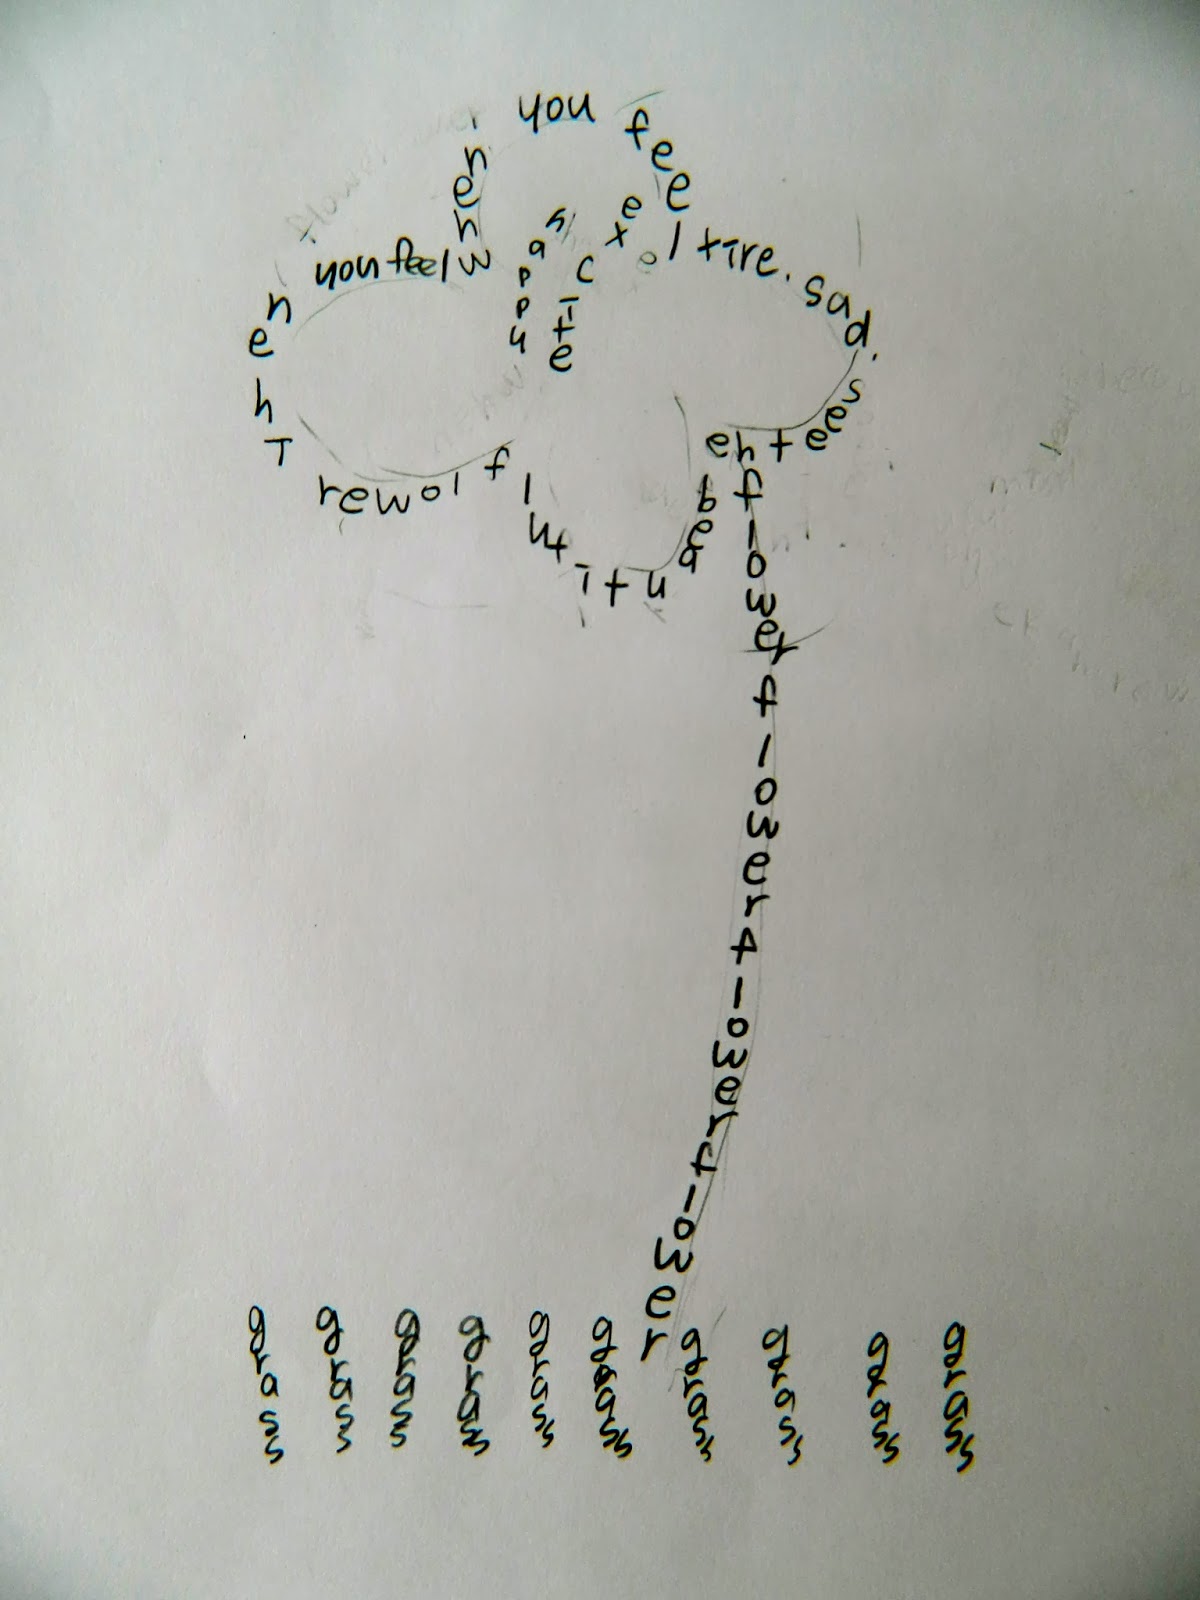 When you feel tire. sad.
see the
beautiful flower
Then you feel
happy
excite
flower
flower
flower
flower
grass grass grass grass grass grass grass grass grass grass